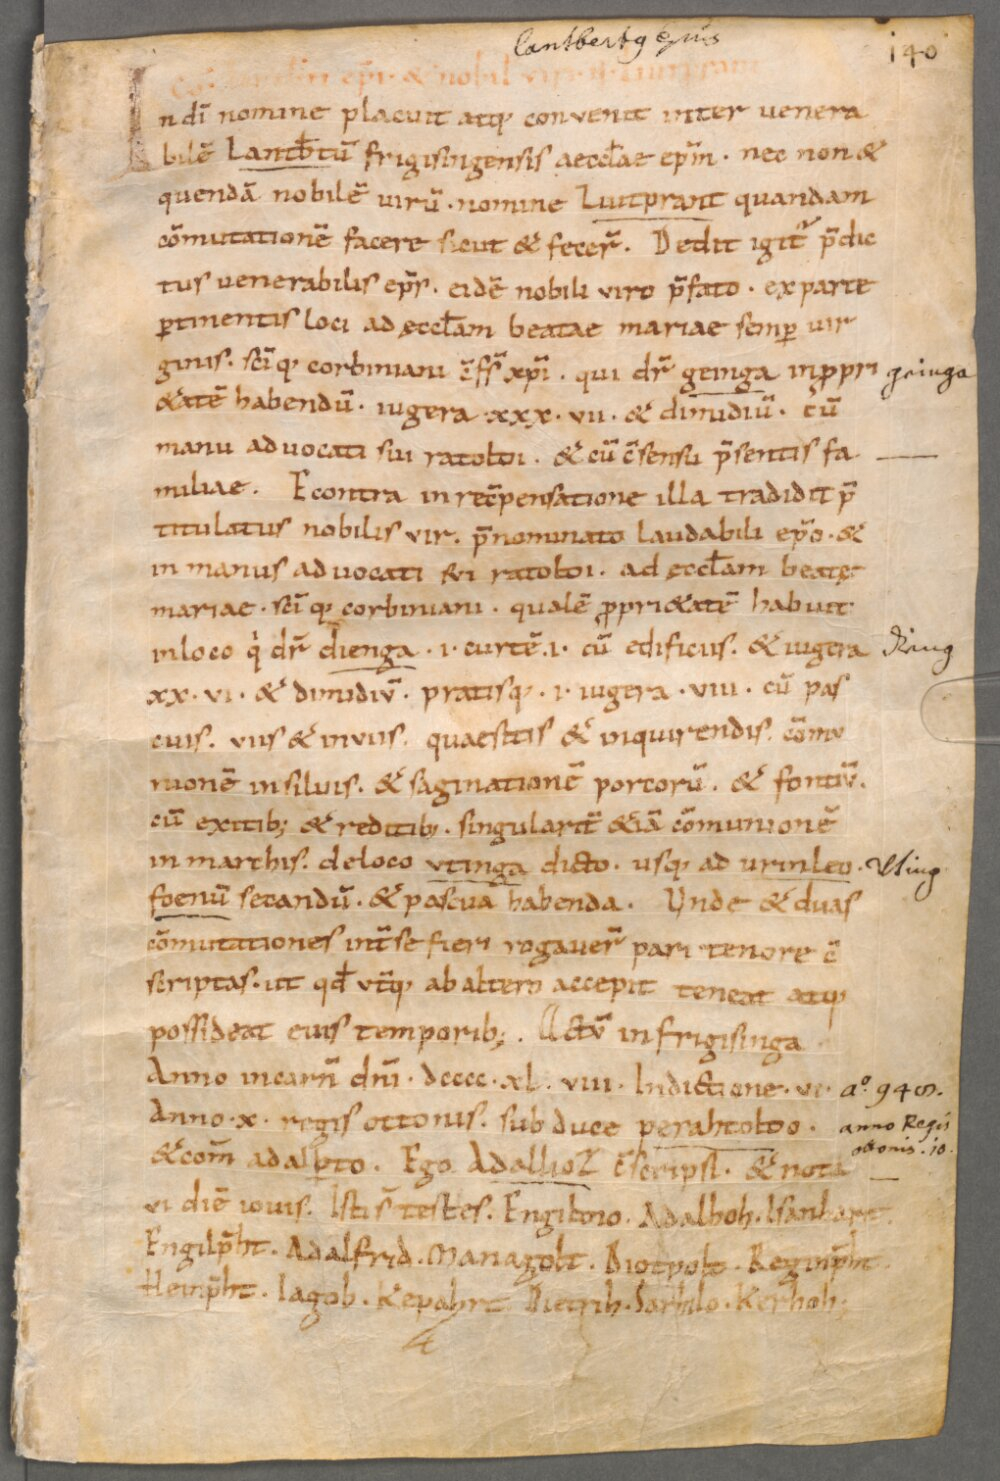 lantbertꝯ ep̄us
140
epī · & nobil vir ·
In dī nomine placuit atq; convenit inter venera
bilē Lantb̄tū frigisingensis aeccl̄ae ep̄m · nec non &
quendā nobilē virū · nomine Liutprant quandam
cōmutationē facere sicut & fecer̄. Dedit igit̄ p̄dic
tus venerabilis ep̄s · eidē nobili viro p̄fato · ex parte
ꝑtinentis loci ad ęccl̄am beatae mariae semꝑ vir
ginis · sc̄iq; corbiniani c̄fs̄ xp̄i · qui dr̄ geinga in ꝓpri
&atē habendū · iugera · xxx · vii · & dimidiū · cū
manu advocati sui ratolti · & cū c̄sensu p̄sentis fa
miliae. Econtra in rec̄pensatione illa tradidit p̄
titulatus nobilis vir · p̄nominato laudabili ep̄o · &
in manus advocati sui ratolti · ad ęccl̄am beatę
mariae · sc̄iq; corbiniani · qualē ꝓpri&atē habuit
in loco q̇ dr̄ dienga · i · curtē · i · cū edificiis · & iugera
xx · vi · & dimidiū · pratisq; · i · iugera · viii · cū pas
cuis · viis & inviis · quaesitis & inquirendis · cōmu
nionē in silvis · & saginationē porcorū · & fontiū ·
cū exitib; & reditib; · singularit̄ &iā cōmunionē
in marchis · de loco utinga dicto · usq; ad urinleo ·
foenū secandū · & pascua habenda · Unde & duas
cōmutationes int̄ se fieri rogaver̄ pari tenore c̄
scriptas · ut qd̄ ut̄q; ab altero accepit teneat atq;
possideat cuis temporib; · Actū in frigisinga
Anno incarn̄ dn̄i · dcccc · xl · viii · Indictione · vi ·
Anno · x · regis ottonis · sub duce perahtoldo ·
& com̄ adalꝑto · Ego Adalliol c̄scripsi · & nota
vi diē iovis · Isti s̄ testes · Engildio · Adalhoh · Isanhart
Engilp̄ht · Adalfrid · Managolt · Diotpolt · Reginp̄ht
Heinp̄ht · Iagob · Kepahrt Dietrih · Sarhilo · Kerhoh ·
geinga
Ding
Uting
aº 948.
anno Regis
ottonis · 10.